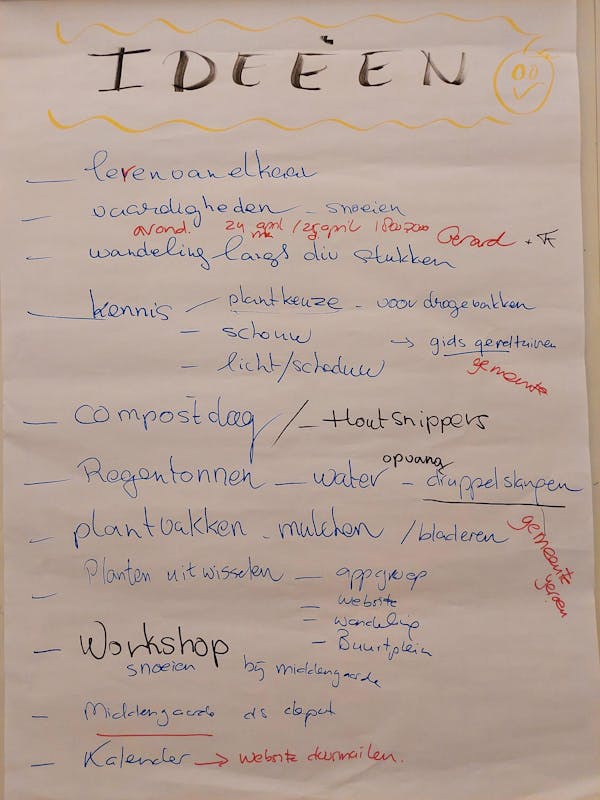 IDEEËN
— leren van elkaar
— vaardigheden - snoeien
avond. 24 april / 25 april 1800 2000 Gerard +
— wandeling langs div stukken
— kennis — plantkeuze - voor droge bakken
— schouw → gids geveltuinen
— licht/schaduw gemeente
— compostdag / — Houtsnippers
opvang
— Regentonnen — water — druppelslangen
— plantvakken - mulchen / bladeren gemeente
— Planten uitwisselen — appgroep
= website
= wandeling
— Workshop — Buurtplein
snoeien bij middengaarde
— Middengaarde als depot
— Kalender → website doormailen.